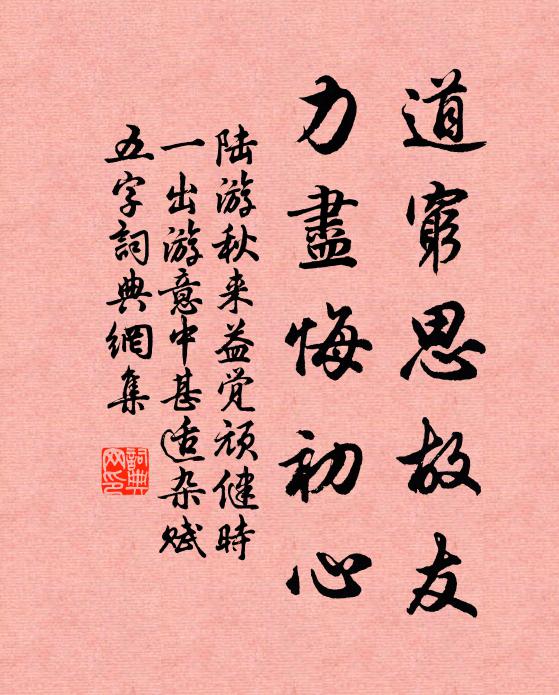 道窮思故友
力盡悔初心
陆游秋来益觉顽健時
一出游意中甚适杂赋
五字詞典網集
詞典网印